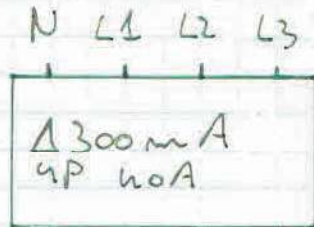 N L1 L2 L3
Δ300mA
4P 40A